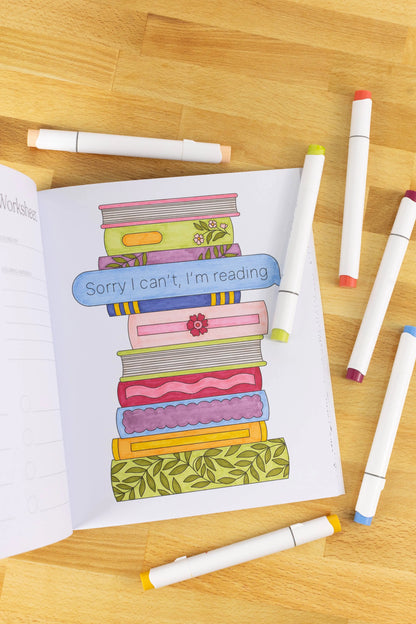 Worksheet
Sorry I can't, I'm reading